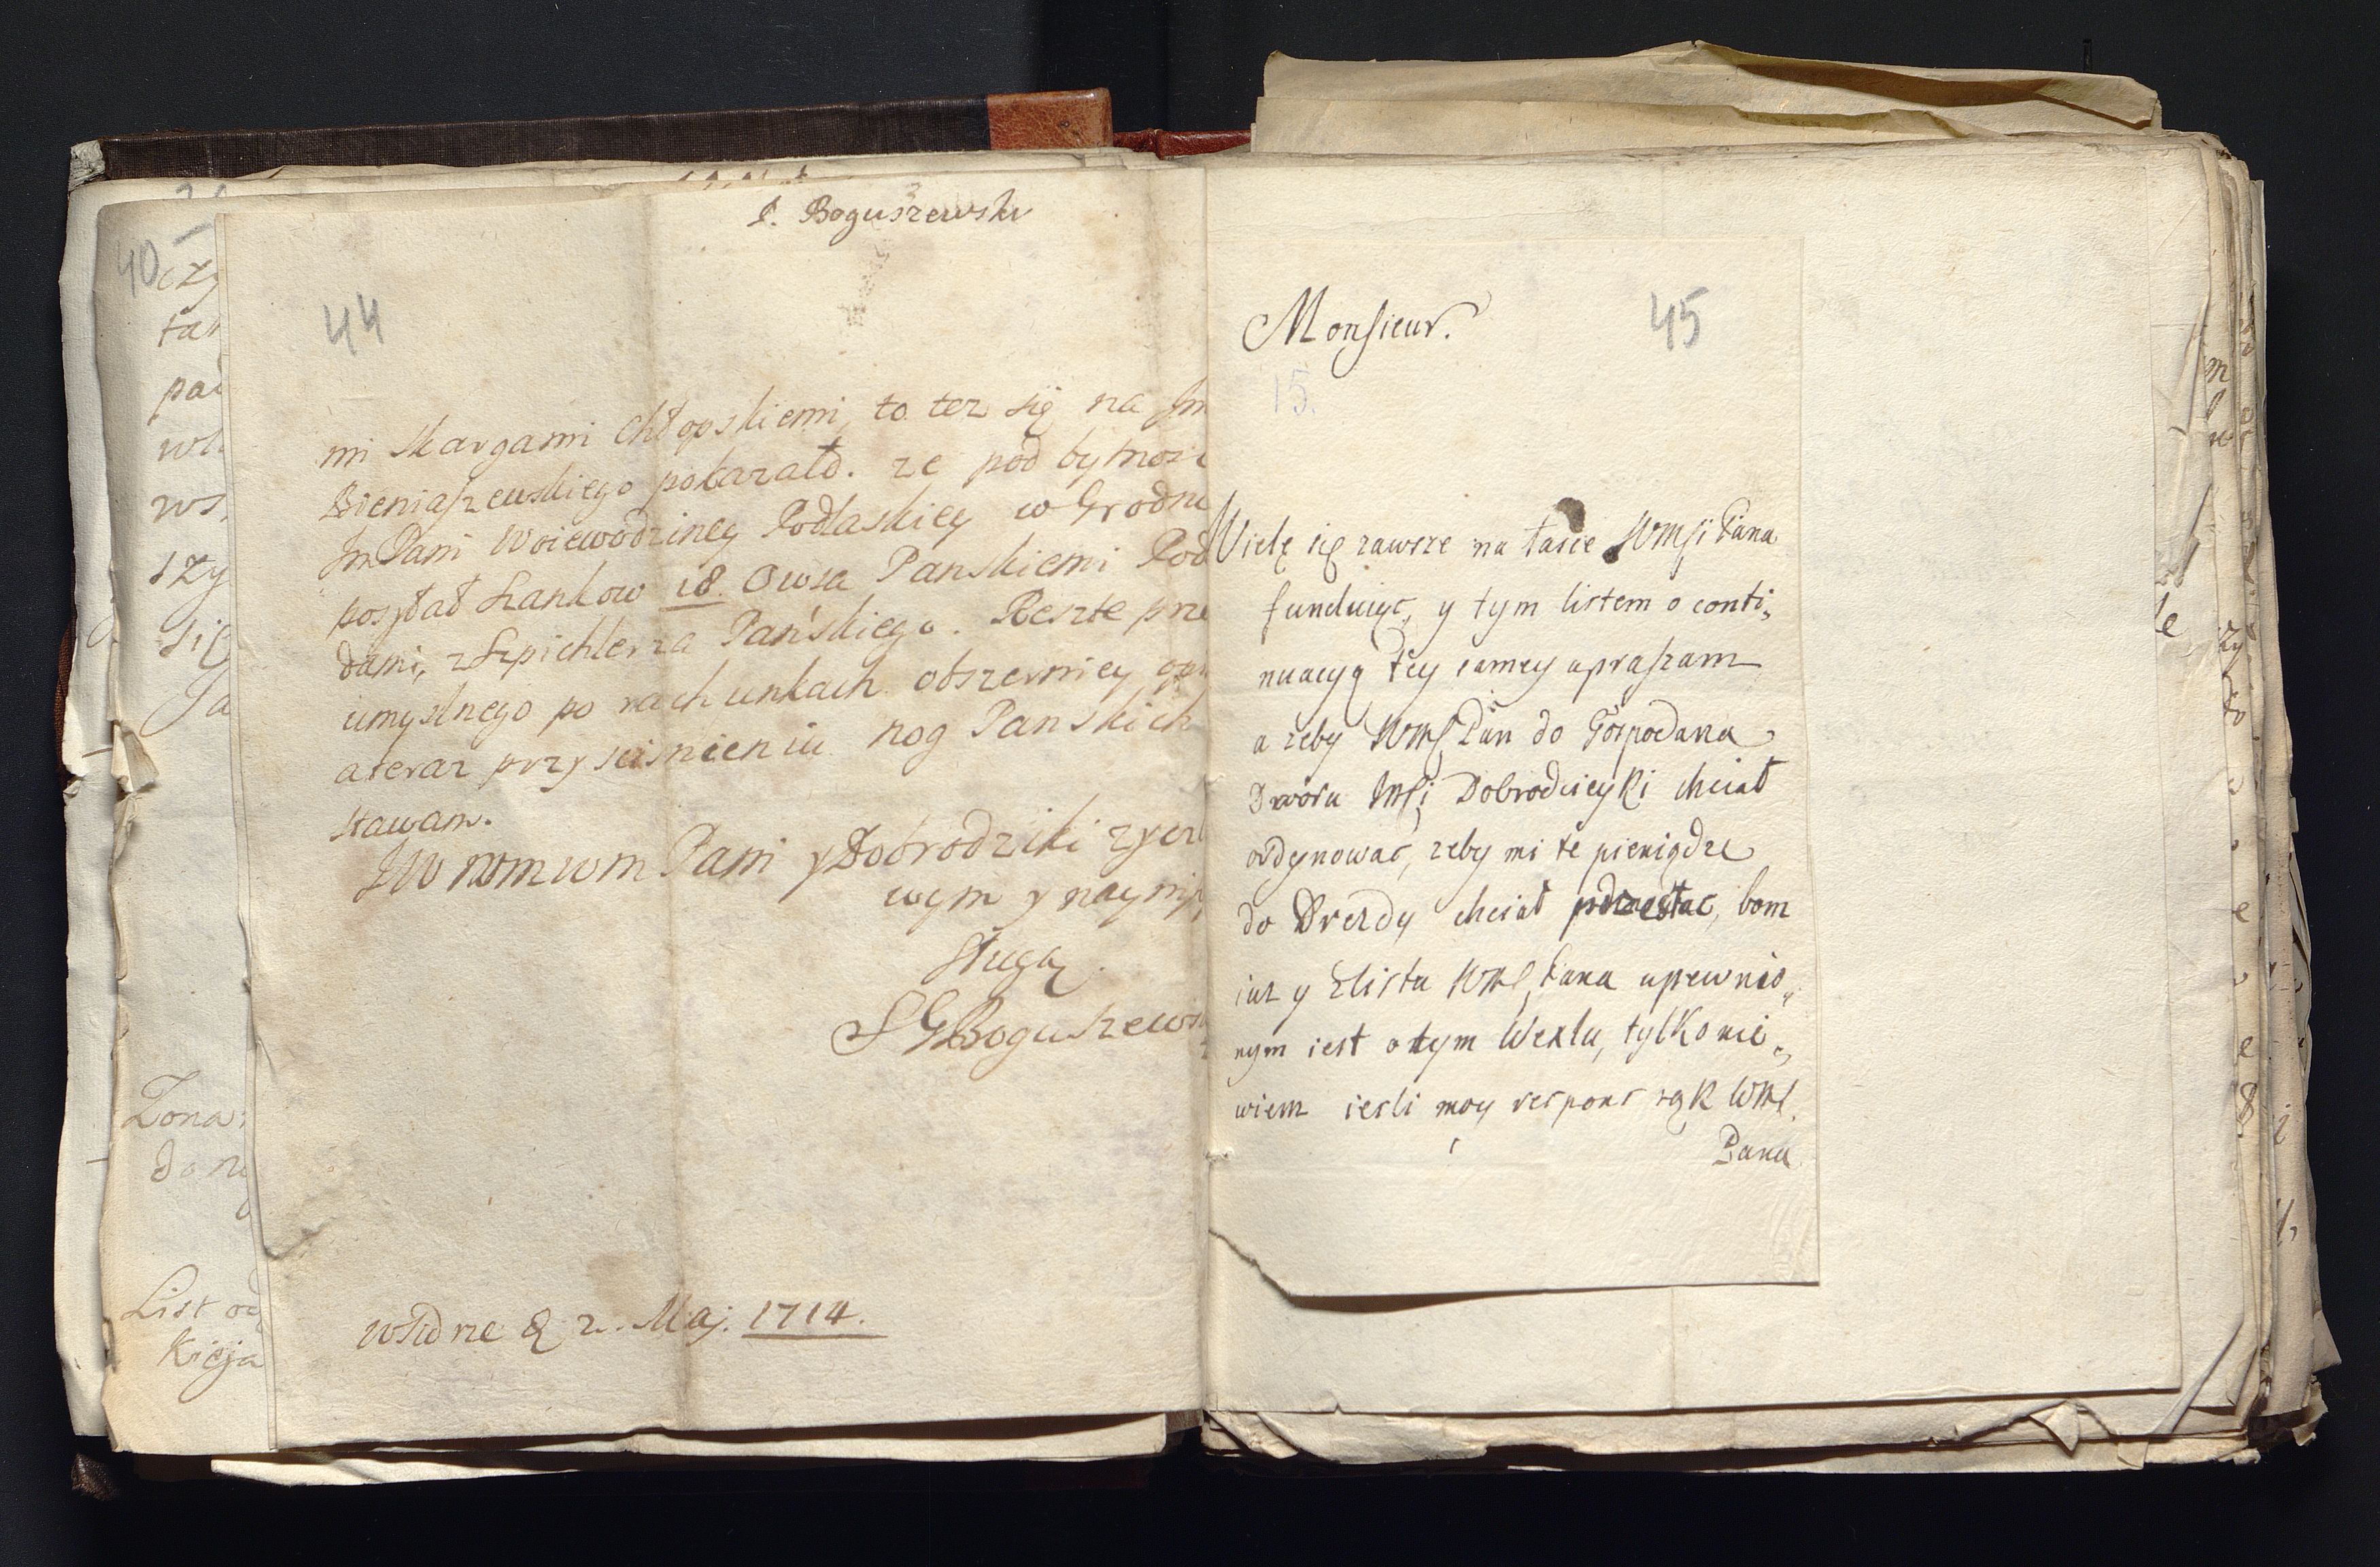 P. Boguszewski
44
mi skargami chłopskiemi, to tez się na Jm
Bieniaszewskiego pokazało. ze pod bytnosc
Jm Pani Woiewodziney Podlaskiey w Grodni
posyłał szankow 18. Owsa Panskiemi Pod
dami, z Szpichlerza Pańskiego. Reszte prze
umyslnego po rachunkach obszerniey
a teraz przy scisnieniu nog Panskich
stawam.
JW wm wm Pani y Dobrodziki zycz
wym y nayniż
sługą.
SG Boguszews
2. Maj. 1714.
40
czy
tar
pa
ws
szy
się
Ja
Zona
do
List od
Kieja
Monsieur.
45
15.
Wielę się zawsze na łasce WMsi Pana
funduiąc, y tym listem o conti,,
nuacyą tey samey upraszam
a zeby WMs Pan do Gospodara
Dworu JMsi Dobrodzieyki chciał
ordynowac, zeby mi te pieniądze
do Drezdy chciał przesłac, bom
iuz y z listu WMs Pana upewnio,,
nym iest o tym Wexlu, tylko nie,,
wiem iesli moy respons rąk WMs.
Pana